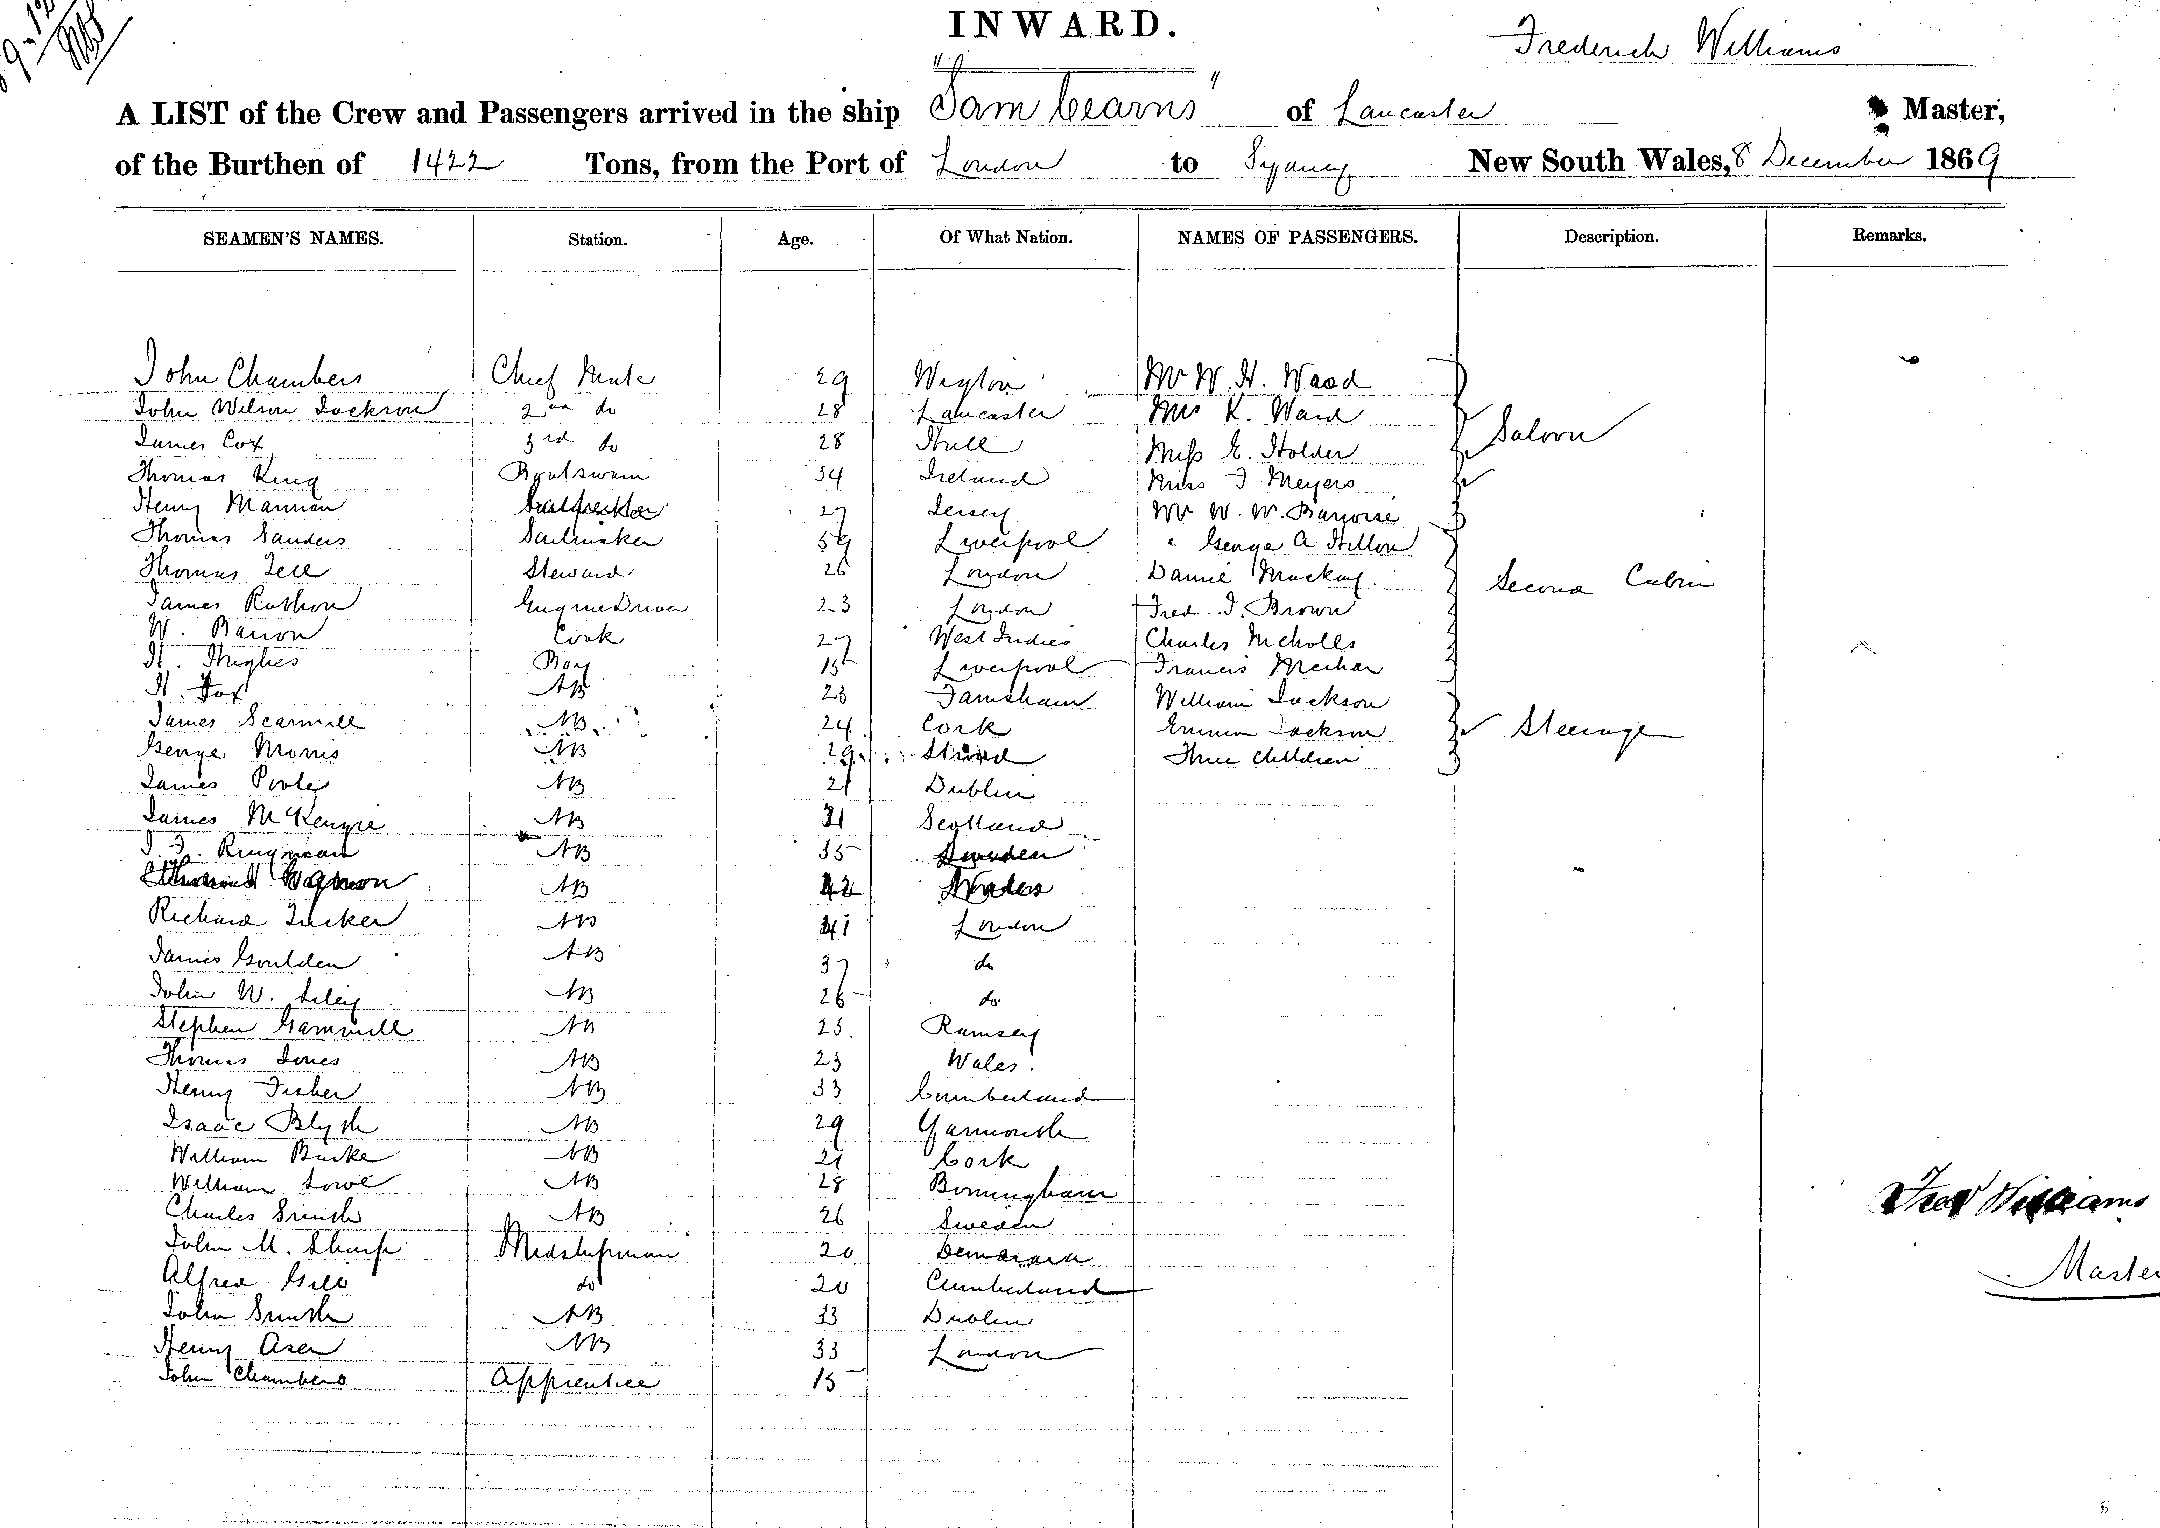 INWARD.
Frederick Williams
A LIST of the Crew and Passengers arrived in the ship "Sam Cearns" of Lancaster Master,
of the Burthen of 1422 Tons, from the Port of London to Sydney New South Wales, 8 December 1869
SEAMEN'S NAMES. Station. Age. Of What Nation. NAMES OF PASSENGERS. Description. Remarks.
John Chambers Chief Mate 29 Wigton Mr W. H. Wood
John Wilson Jackson 2nd do 28 Lancaster Mrs K. Ward
Saloon
James Cox 3rd do 28 Hull Miss E. Holder
Thomas King Boatswain 34 Ireland Miss F Meyers
Henry Mannion 27 Jersey Mr W. W.
Thomas Sanders Sailmaker 59 Liverpool " George A Hilton
Thomas Tell Steward 26 London Daniel Mackay
Second Cabin
James Rathbon Engine Driver 23 London Fred J. Brown
W. Barron Cook 27 West Indies Charles Nicholls
H. Hughes Boy 15 Liverpool Francis Meehan
H. Fox AB 23 William Jackson
James AB 24 Cork Emma Jackson
Steerage
George Morris AB 29 Three Children
James Poole AB 21 Dublin
James McKenzie AB 31 Scotland
Ringman AB 35 Sweden
AB 42
Richard Tucker AB 41 London
James Goulden AB 37 do
John W. AB 26 do
Stephen Gammill AB 25 Ramsey
Thomas Jones AB 23 Wales.
Henry Fisher AB 33 Cumberland
Isaac Blyth AB 29 Yarmouth
William Burke AB 21 Cork
William Lowe AB 28 Birmingham
Charles Smith AB 26 Sweden
Fred Williams
John M. Sharp Midshipman 20 Demerara
Master
Alfred Gill do 20 Cumberland
John Smith AB 33 Dublin
Henry AB 33 London
John Chambers Apprentice 15